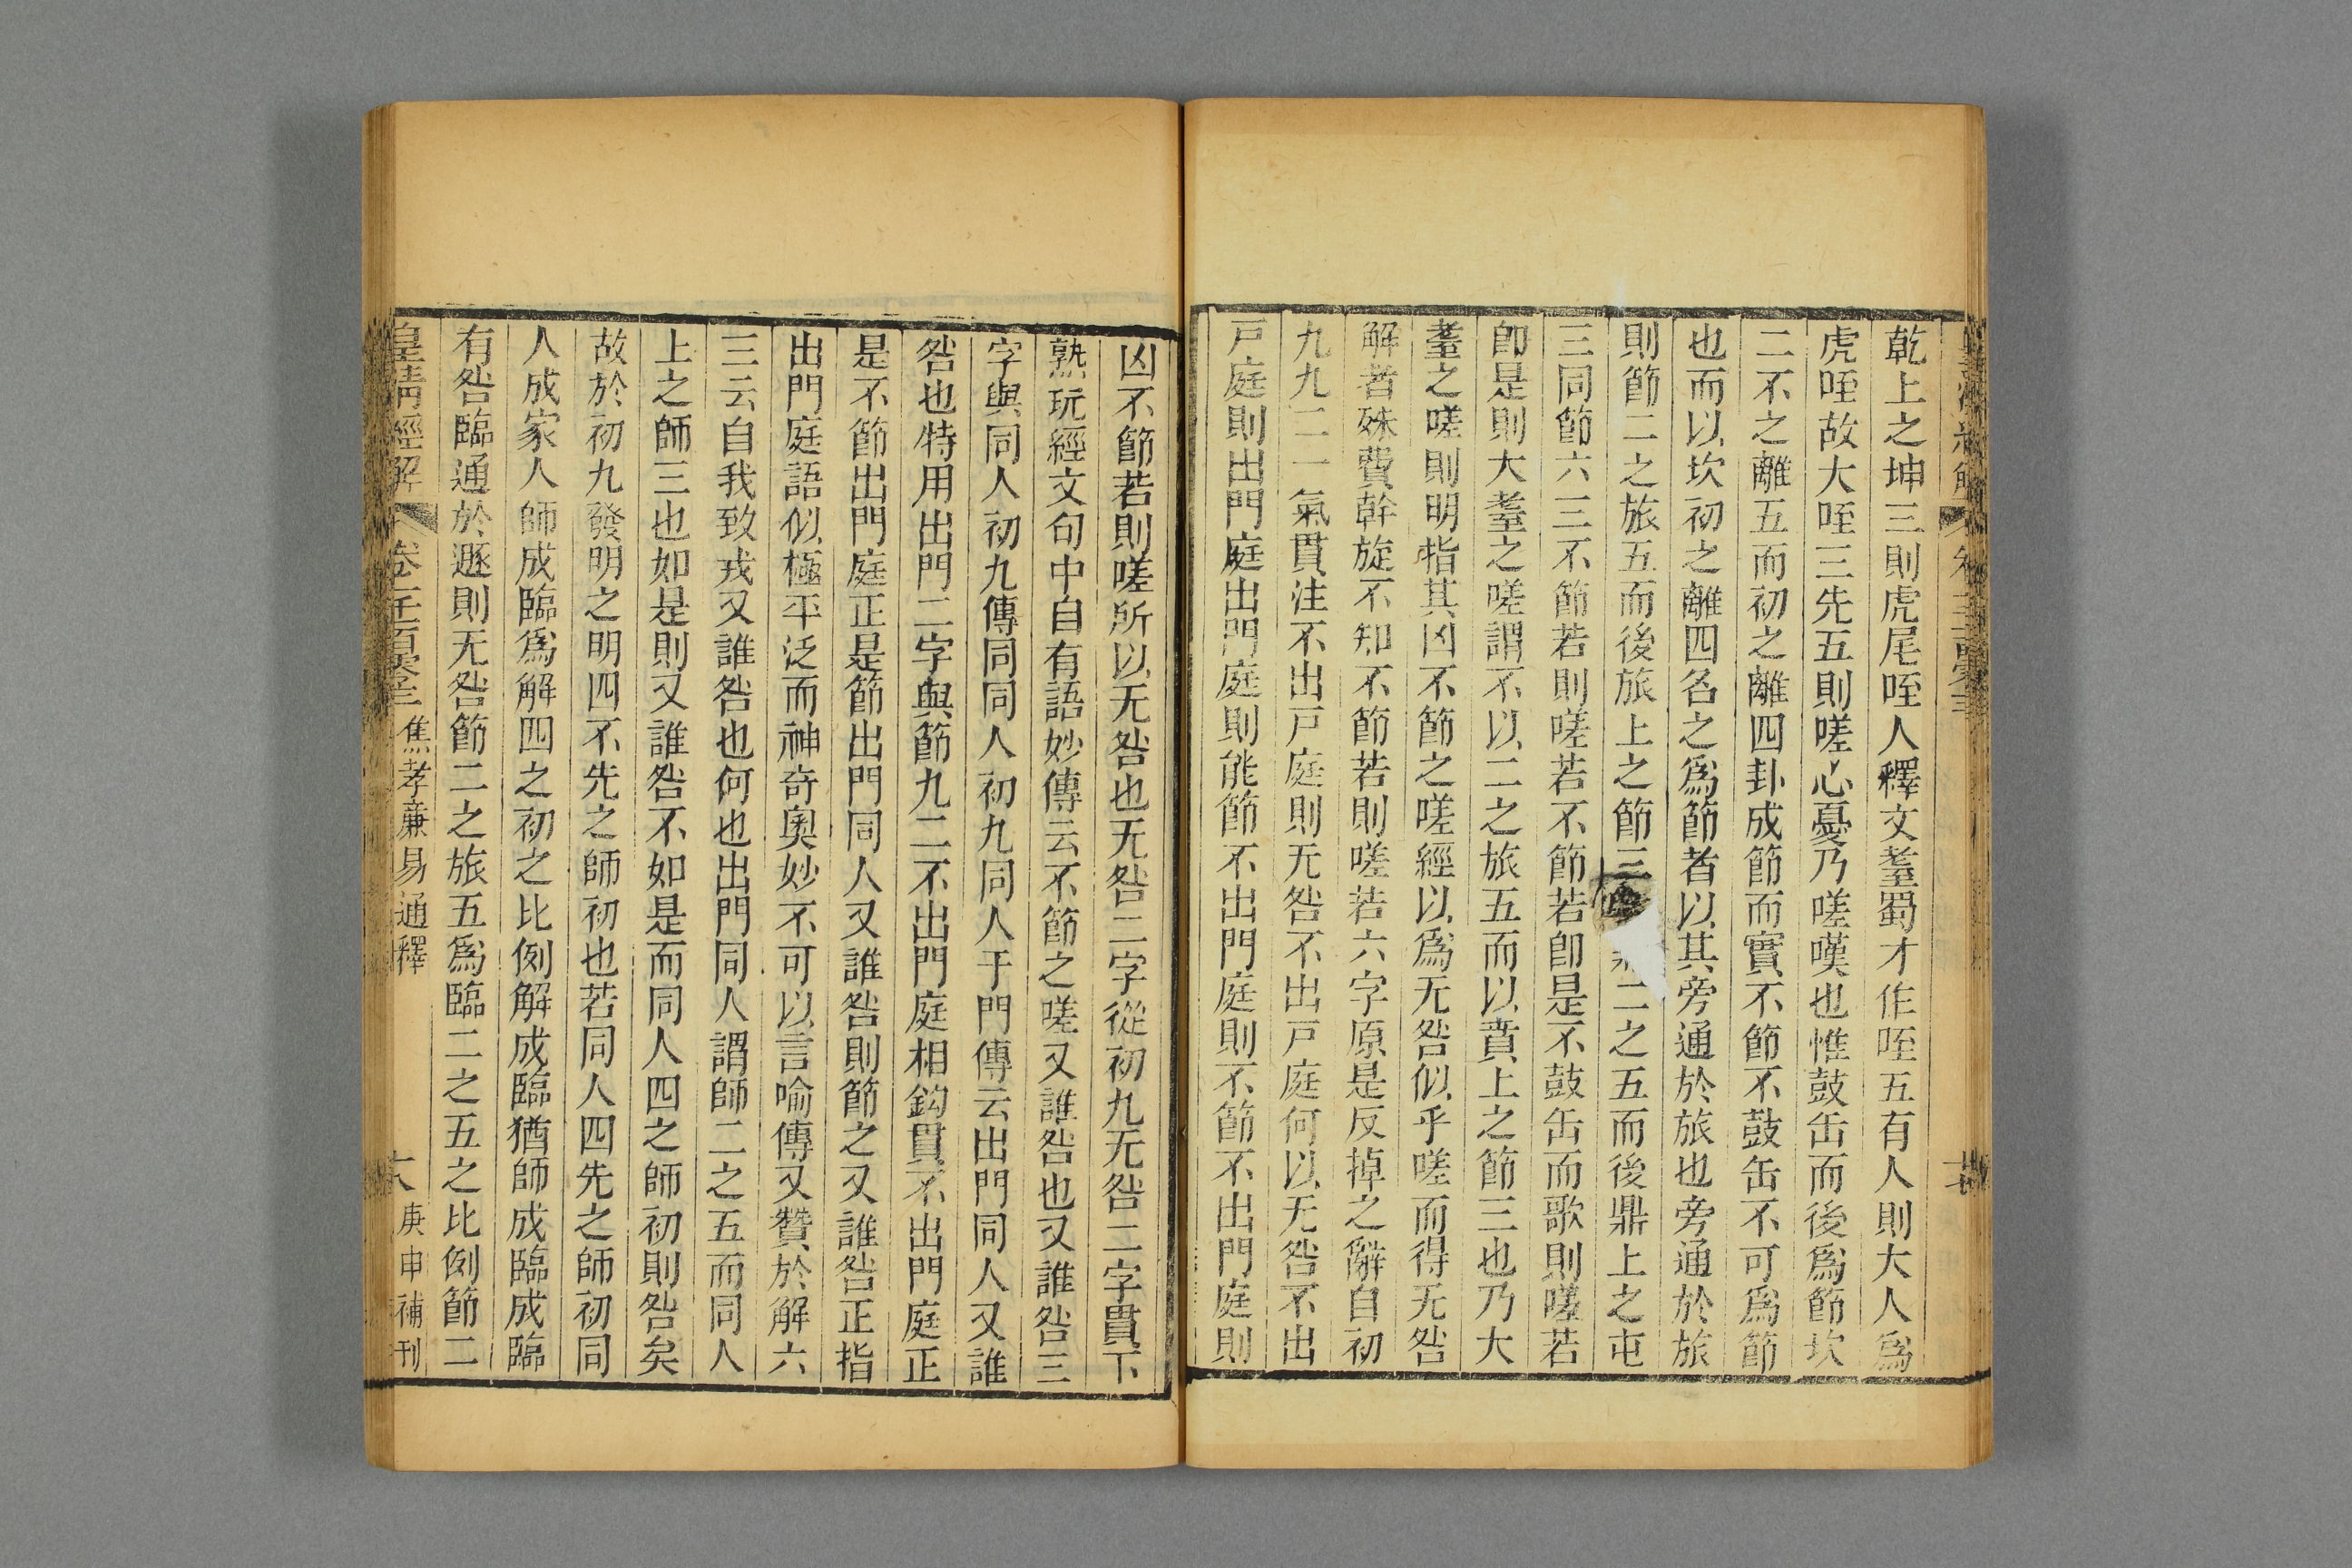 乾上之坤三則虎尾咥人釋文耋蜀才作咥五有人則大人爲
虎咥故大咥三先五則嗟心憂乃嗟嘆也惟鼓缶而後爲節坎
二不之離五而初之離四卦成節而實不節不鼓缶不可爲節
也而以坎初之離四名之爲節者以其旁通於旅也旁通於旅
則節二之旅五而後旅上之節三 二之五而後鼎上之屯
三同節六三不節若則嗟若不節若卽是不鼓缶而歌則嗟若
卽是則大耋之嗟謂不以二之旅五而以賁上之節三也乃大
耋之嗟則明指其凶不節之嗟經以爲无咎似乎嗟而得无咎
解者殊費幹旋不知不節若則嗟若六字原是反掉之辭自初
九九二一氣貫注不出戸庭則无咎不出戸庭何以无咎不出
戸庭則出門庭出門庭則能節不出門庭則不節不出門庭則
凶不節若則嗟所以无咎也无咎二字從初九无咎二字貫下
熟玩經文句中自有語妙傳云不節之嗟又誰咎也又誰咎三
字與同人初九傳同同人初九同人于門傳云出門同人又誰
咎也特用出門二字與節九二不出門庭相鈎貫不出門庭正
是不節出門庭正是節出門同人又誰咎則節之又誰咎正指
出門庭語似極平泛而神奇奧妙不可以言喻傳又贊於解六
三云自我致戎又誰咎也何也出門同人謂師二之五而同人
上之師三也如是則又誰咎不如是而同人四之師初則咎矣
故於初九發明之明四不先之師初也若同人四先之師初同
人成家人師成臨爲解四之初之比例解成臨猶師成臨成臨
有咎臨通於遯則无咎節二之旅五爲臨二之五之比例節二
皇清經解 卷一千一百零三 焦孝廉易通釋 大 庚申補刊